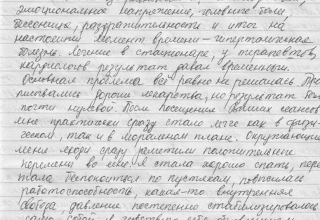 эмоциональное напряжение, головные боли,
бессонница, раздражительность и итог на
настоящий момент времени - гипертоническая
болезнь. Лечение в стационаре, у терапевтов,
кардиологов результат давал временный.
Основная проблема все равно не решалась. Про
писывались хорошие лекарства, но результат был
почти нулевой. После посещения ваших сеансов
мне практически сразу стало легче как в физи-
ческом, так и в моральном плане. Окружающие
меня люди сразу заметили положительные
перемены во мне. Я стала хорошо спать, пере
стала беспокоиться по пустякам, повысилась
работоспособность, какая-то внутренняя
свобода, давление постепенно стабилизировалось
само собой, я чувствую себя